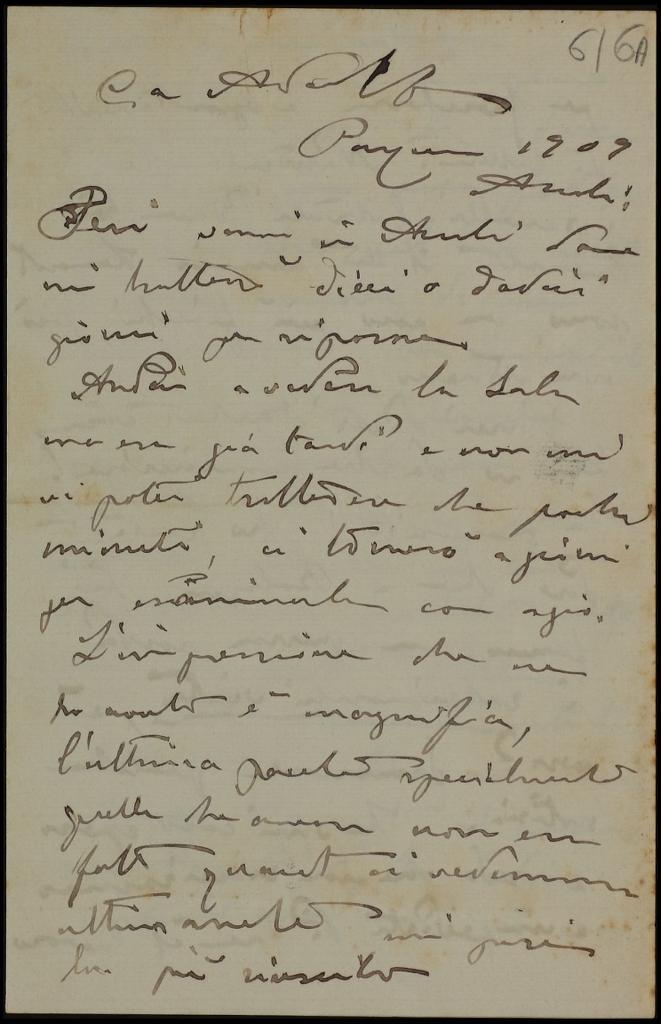 6/6A
Ca
1909
Ieri venni ad dove
mi tratterrò dieci o dodici
giorni per riposarmi.
Andai a vedere la Sala
ma era già tardi e non mi
vi potei trattenere che pochi
minuti, ci tornerò a giorni
per esaminarla con agio.
L'impressione che ne
ho avuto è magnifica,
l'ultima parete specialmente
quella che ancora non era
fatta quando ci vedemmo
ultimamente mi pare
la più riuscita